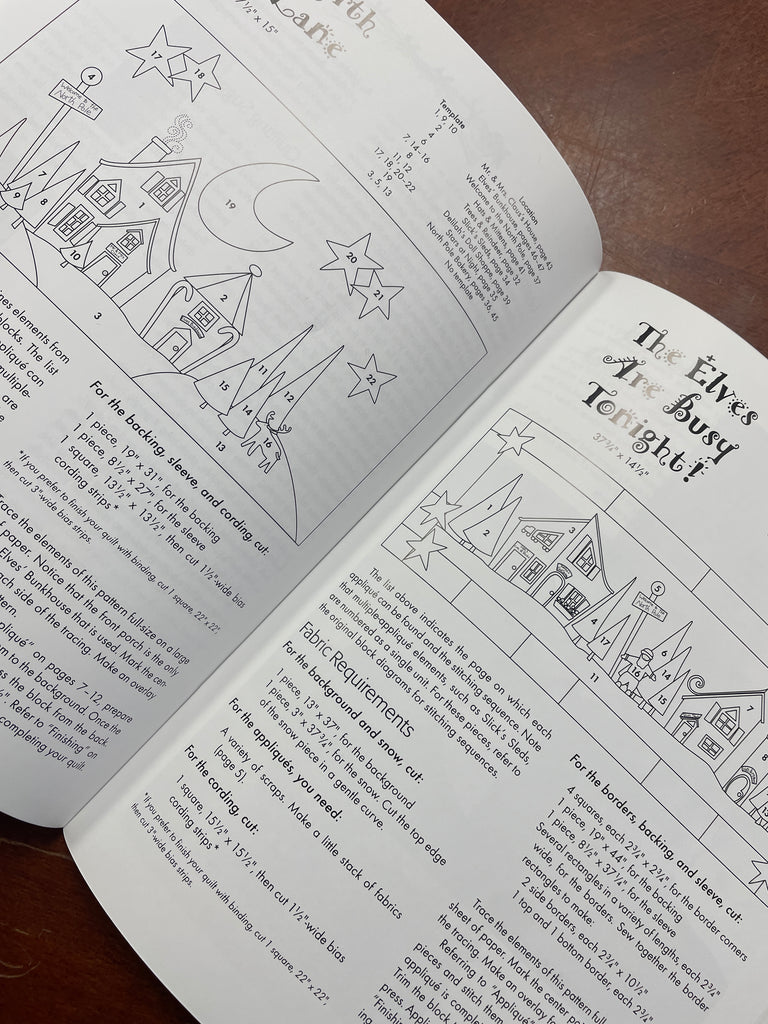 Lane
17½" × 15"
17
18
4
Welcome to the
North Pole
7
8
9
10
1
19
2
3
20
21
22
11
12
15
14
16
13
Template
1, 9, 10
2
4
6
7, 14–16
8
11, 12
17, 18, 20–22
19
3, 5, 13
Location
Mr. & Mrs. Claus's House, page 43
Elves' Bunkhouse, pages 46–47
Welcome to the North Pole, page 37
Hats & Mittens, page 41
Trees & Reindeer, page 32
Slick's Sleds, page 34
Delilah's Doll Shoppe, page 39
Stars at Night, page 35
North Pole Bakery, pages 36, 45
No template
elements from
blocks. The list
appliqué can
multiple-
are
For the backing, sleeve, and cording, cut:
1 piece, 19" × 31", for the backing
1 piece, 8½" × 27", for the sleeve
1 square, 13½" × 13½", then cut 1½"-wide bias
cording strips*
*If you prefer to finish your quilt with binding, cut 1 square, 22" × 22",
then cut 3"-wide bias strips.
Trace the elements of this pattern full-size on a large
of paper. Notice that the front porch is the only
Elves' Bunkhouse that is used. Mark the cen-
each side of the tracing. Make an overlay.
on pages 7–12, prepare
the background. Once the
the block from the back
Refer to "Finishing" on
completing your quilt.
The Elves
Are Busy
Tonight!
37¾" × 14½"
1
2
3
4
17
5
Welcome to the
North Pole
16
6
14
15
11
7
8
13
The list above indicates the page on which each
appliqué can be found and the stitching sequence. Note
that multiple-appliqué elements, such as Slick's Sleds,
are numbered as a single unit. For these pieces, refer to
the original block diagrams for stitching sequences.
Fabric Requirements
For the background and snow, cut:
1 piece, 13" × 37", for the background
1 piece, 3" × 37¾", for the snow. Cut the top edge
of the snow piece in a gentle curve.
For the appliqués, you need:
A variety of scraps. Make a little stack of fabrics
(page 5).
For the cording, cut:
1 square, 15½" × 15½", then cut 1½"-wide bias
cording strips*
*If you prefer to finish your quilt with binding, cut 1 square, 22" × 22",
then cut 3"-wide bias strips.
For the borders, backing, and sleeve, cut:
4 squares, each 2¾" × 2¾", for the border corners
1 piece, 19" × 44", for the backing
1 piece, 8½" × 37¼", for the sleeve
Several rectangles in a variety of lengths, each 2¾"
wide, for the borders. Sew together the border
rectangles to make:
2 side borders, each 2¾" × 10½"
1 top and 1 bottom border, each 2¾"
Trace the elements of this pattern full-
sheet of paper. Mark the center
the tracing. Make an overlay
Referring to "Appliqué"
pieces and stitch them
appliqué is comple
Trim the block
press. Appli
"Finishin
ing